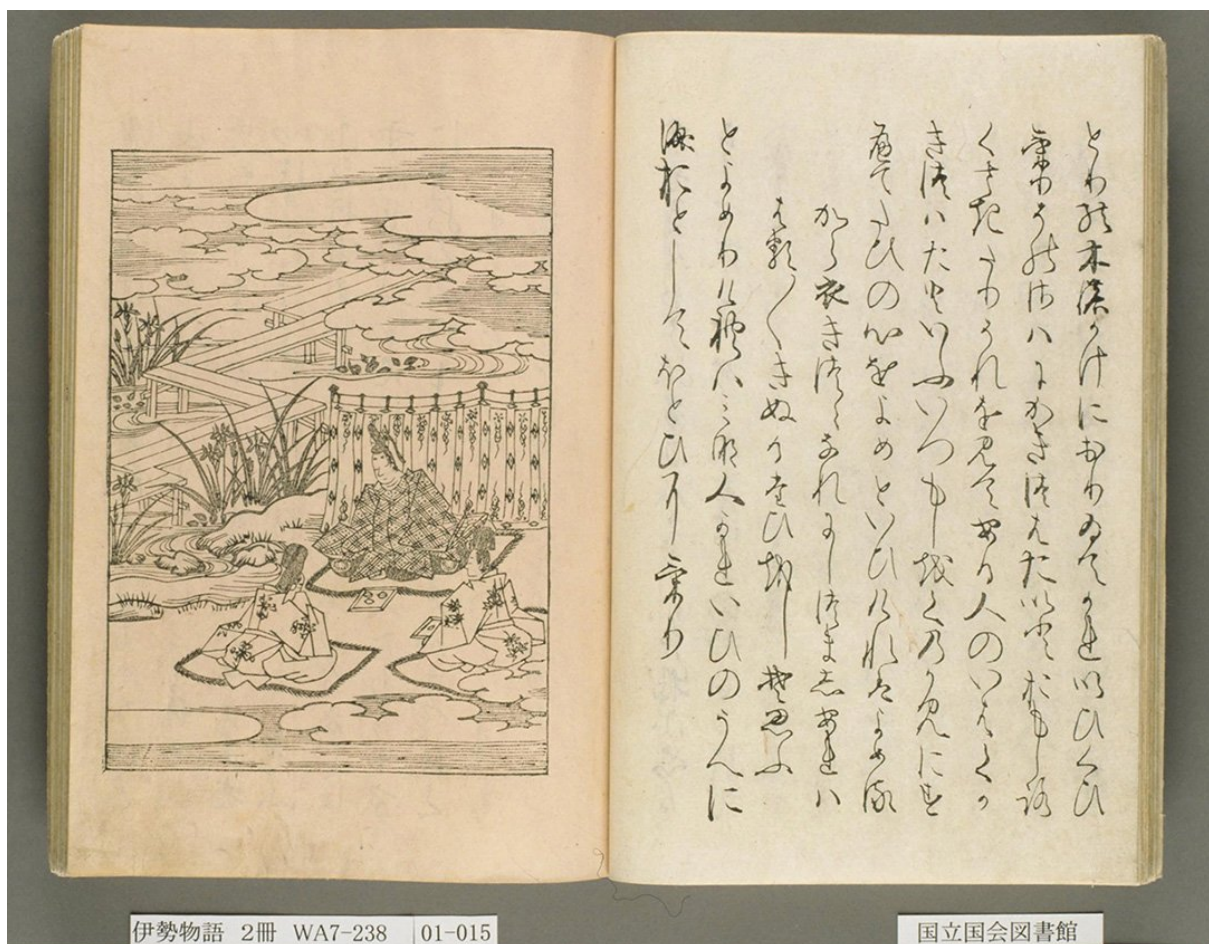 とりの木のかけにおりゐてかれいひくひ
けりそのさはにかきつはたいとおもしろ
くさきたりそれを見てある人のいはくか
きつはたといふいつもしをくのかみにす
へてたひの心をよめといひけれはよめる
から衣きつゝなれにしつましあれは
はる〳〵きぬるたひをしそ思ふ
とよめりけれはみな人かれいひのうへに
涙おとしてほとひにけり
伊勢物語 2冊 WA7-238 01-015
国立国会図書館